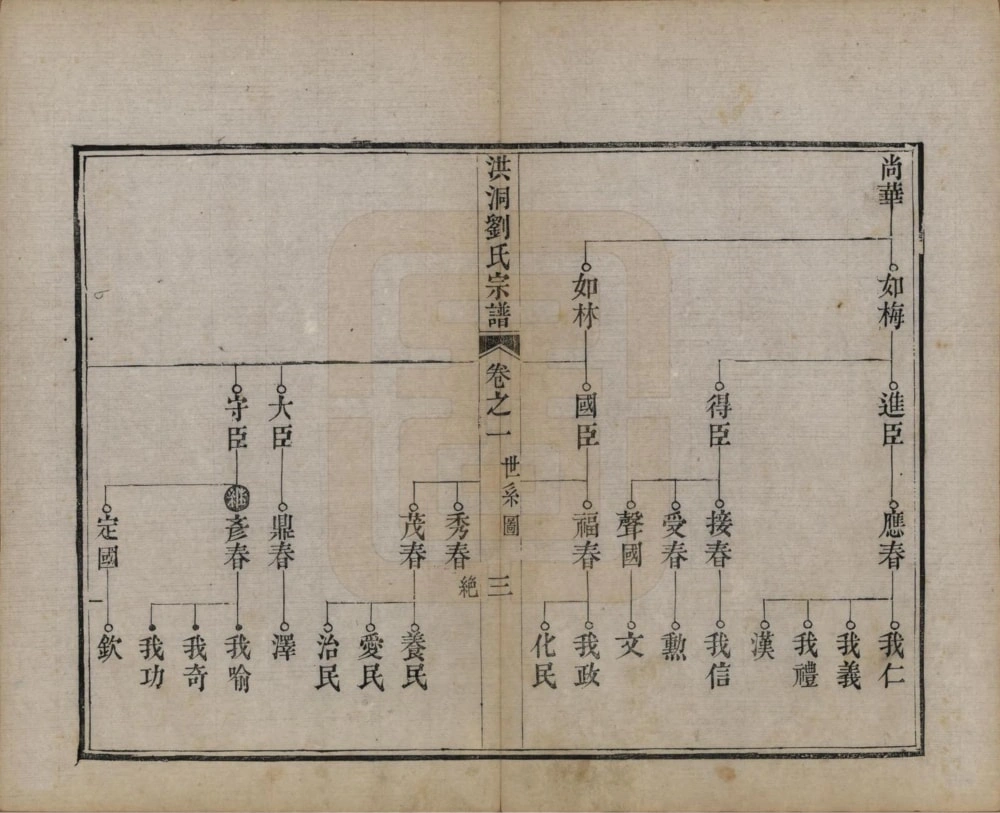 尚華
如梅
如林
進臣
得臣
國臣
大臣
守臣
應春
接春
受春
聲國
福春
秀春
絶
茂春
鼎春
繼
彥春
定國
我仁
我義
我禮
漢
我信
勲
文
我政
化民
養民
愛民
治民
澤
我喻
我奇
我功
欽
洪洞劉氏宗譜
卷之一
世系圖
三